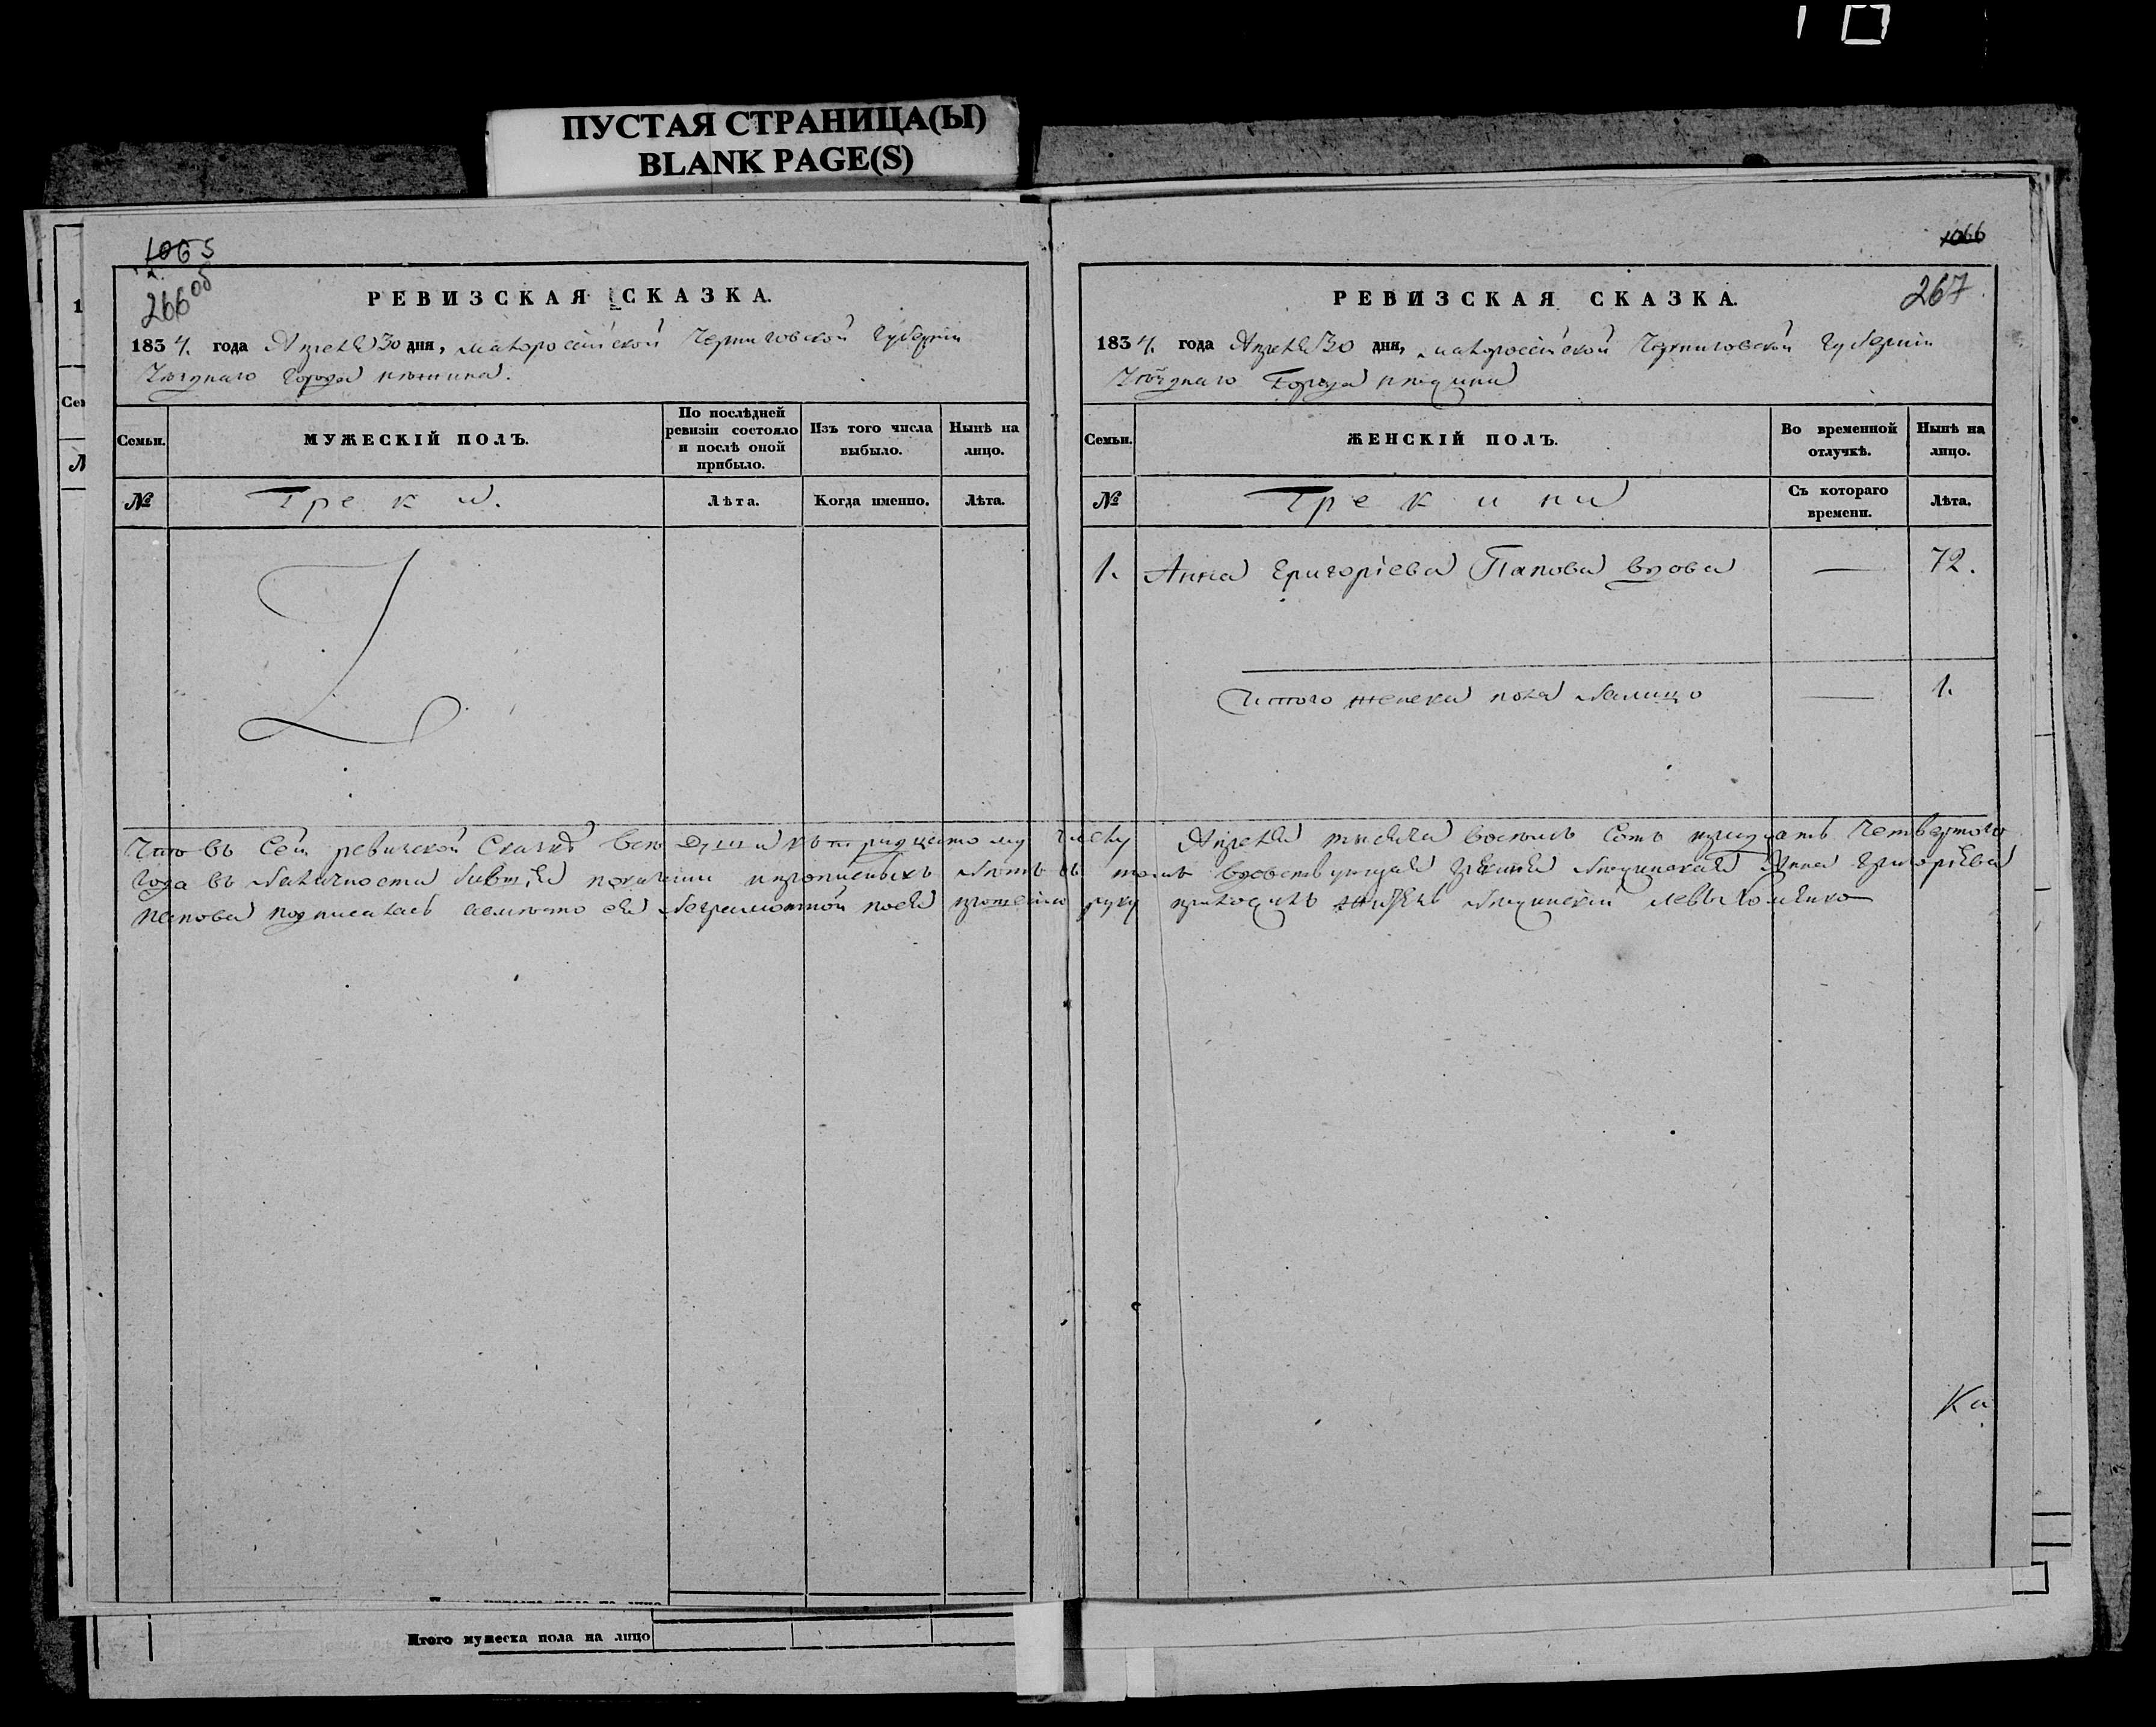 ПУСТАЯ СТРАНИЦА(Ы)
BLANK PAGE(S)
1065
266об
РЕВИЗСКАЯ СКАЗКА.
1834. года Апреля 30 дня, малороссійской Черниговской губерніи
города нежина.
Семьи.
МУЖЕСКІЙ ПОЛЪ.
По послѣдней ревизіи состояло и послѣ оной прибыло.
Изъ того числа выбыло.
Нынѣ на лицо.
№
Греки.
Лѣта.
Когда именно.
Лѣта.
1066
267
РЕВИЗСКАЯ СКАЗКА.
1834. года Апреля 30 дня, малороссійской Черниговской губерніи
Города
Семьи.
ЖЕНСКІЙ ПОЛЪ.
Во временной отлучкѣ.
Нынѣ на лицо.
№
Грекини
Съ котораго времени.
Лѣта.
1. Анна Григоріева Папова вдова — 72.
Итого женска пола налицо — 1.
Что въ сей ревизской Сказке все души къ тридцатому числу Апреля тысяча восемь сотъ тридцать Четвертого
года въ наличности показани и прописаны въ томъ Анна Григоріева
Папова подписалась а вместо ея неграмотной по ея прошенію руку приложилъ
Ка
Итого мужеска пола на лицо